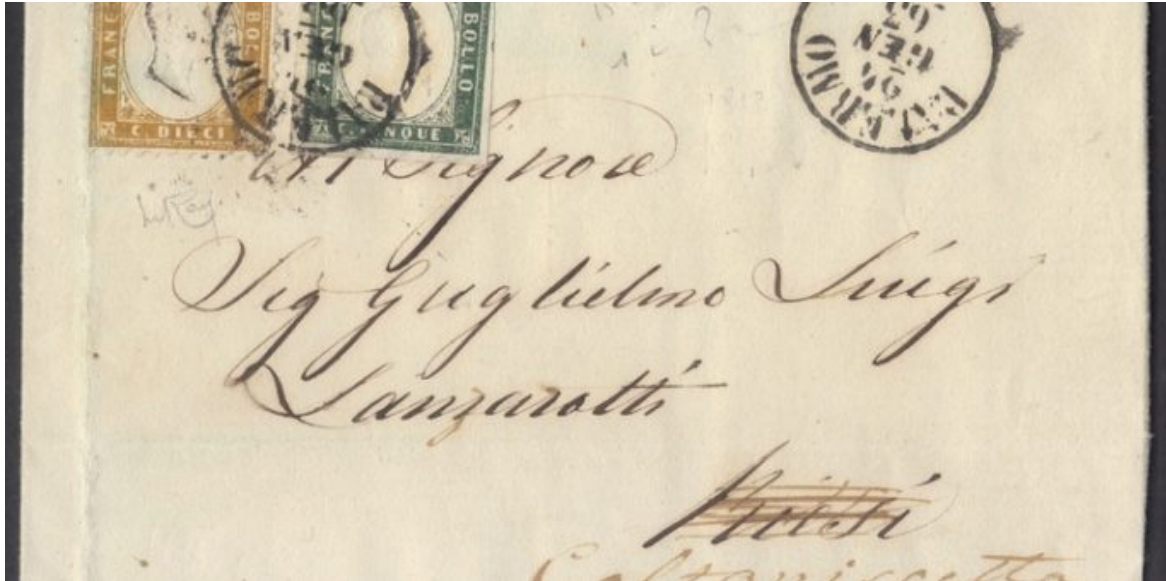 FRANCO BOLLO
C. DIECI
FRANCO BOLLO
C. CINQUE
PALERMO
24
GEN
63
All Signore
Sig Guglielmo Luigi
Lanzarotti
Caltanissetta